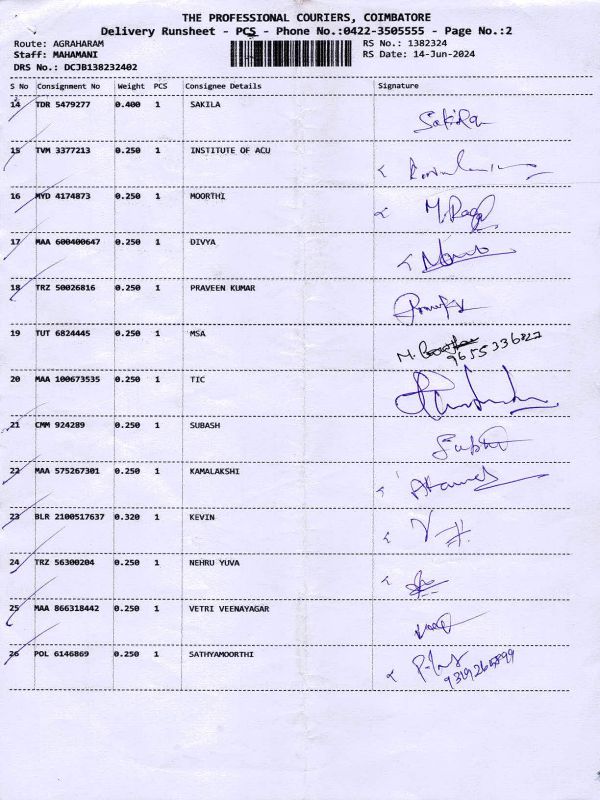 THE PROFESSIONAL COURIERS, COIMBATORE
Delivery Runsheet - PCS - Phone No.:0422-3505555 - Page No.:2
Route: AGRAHARAM RS No.: 1382324
Staff: MAHAMANI RS Date: 14-Jun-2024
DRS No.: DCJB138232402
S No Consignment No Weight PCS Consignee Details Signature
14 TDR 5479277 0.400 1 SAKILA
15 TVM 3377213 0.250 1 INSTITUTE OF ACU
16 MYD 4174873 0.250 1 MOORTHI
17 MAA 600400647 0.250 1 DIVYA
18 TRZ 50026816 0.250 1 PRAVEEN KUMAR
19 TUT 6824445 0.250 1 MSA
20 MAA 100673535 0.250 1 TIC
21 CMM 924289 0.250 1 SUBASH
22 MAA 575267301 0.250 1 KAMALAKSHI
23 BLR 2100517637 0.320 1 KEVIN
24 TRZ 56300204 0.250 1 NEHRU YUVA
25 MAA 866318442 0.250 1 VETRI VEENAYAGAR
26 POL 6146869 0.250 1 SATHYAMOORTHI